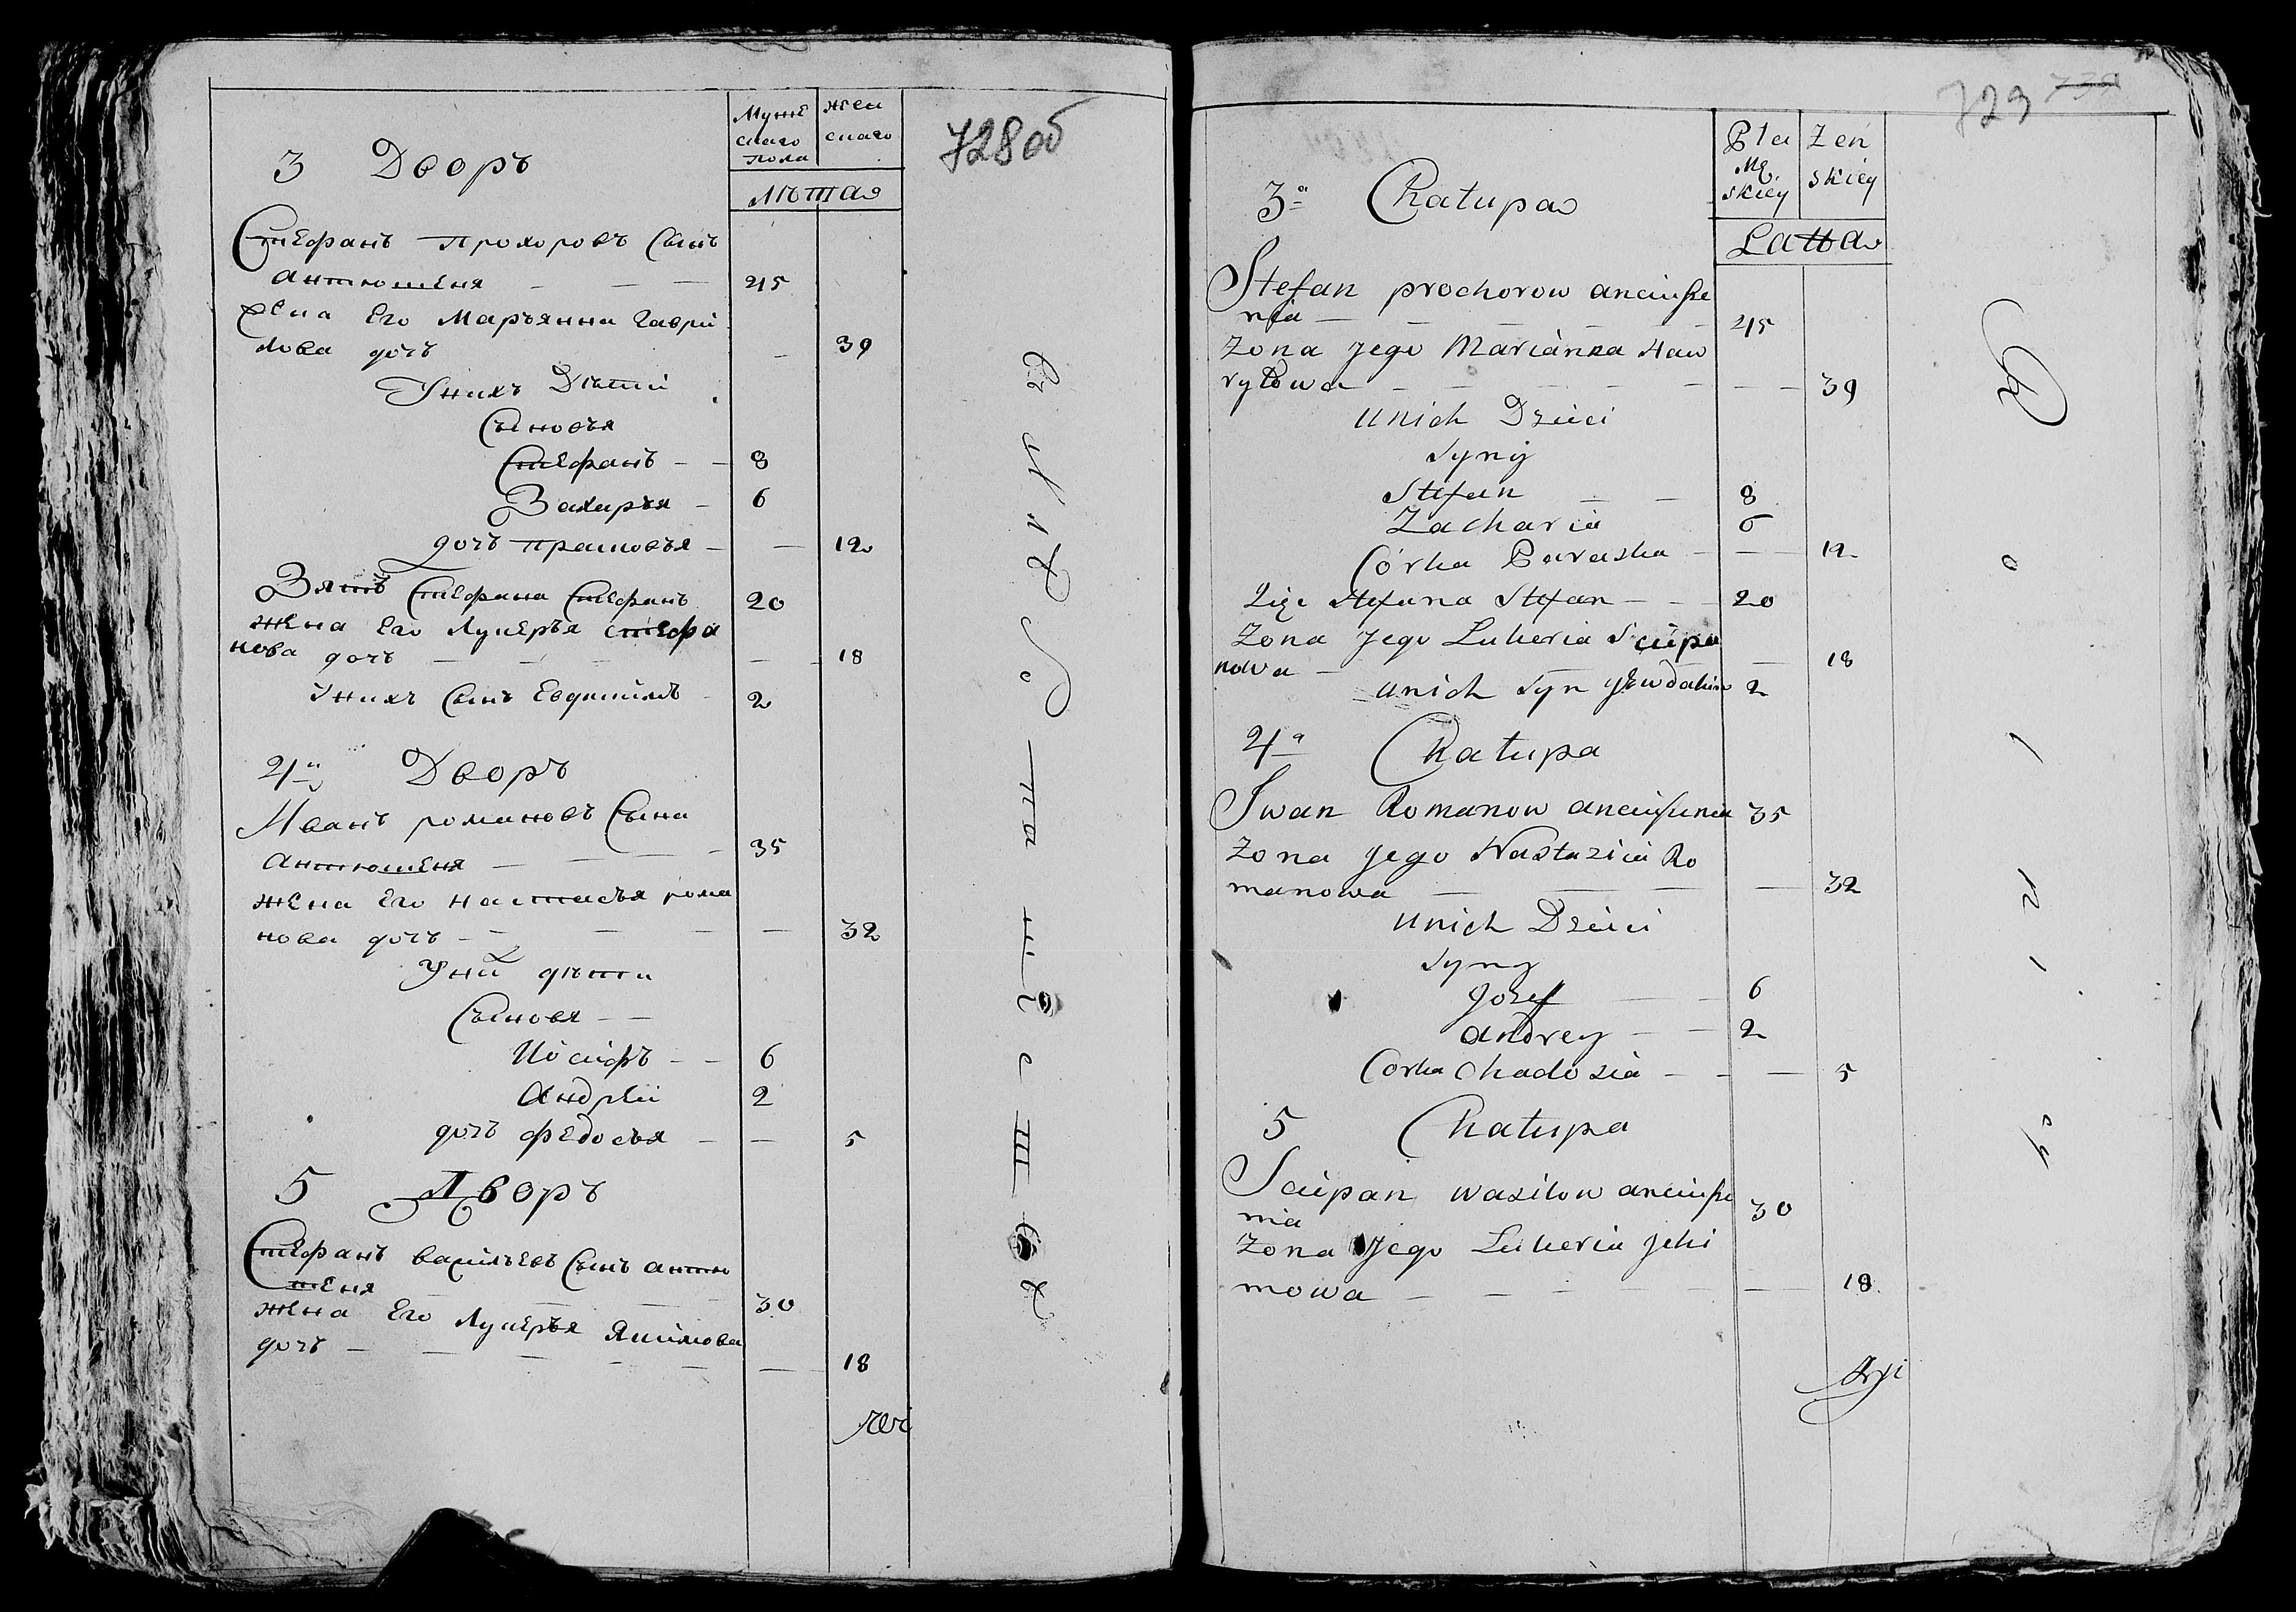 728об
Мужескаго пола
Женскаго
Лѣта
3 Дворъ
Стефанъ Прохоровъ Сынъ
антюшеня — — — 45
жена Его Марьянна Гаври
лова дочь — 39
Унихъ Дѣти
Сыновья
Стефанъ — — 8
Захарья — 6
дочъ прасковья — — 12
Зять Стефана Стефанъ 20
жена Его Лукерья стефа
нова дочъ — — — 18
Унихъ Сынъ Евдокимъ 2
4й Дворъ
Иванъ романовъ Сына
антюшеня — — — 35
жена Его настасья рома
нова дочъ — — — 32
Уних дѣти
Сыновя — —
Иосифъ — — 6
Андрей 2
дочъ федосья — — 5
5 Дворъ
Стефанъ васильевъ Сынъ антю
шеня 30
жена Его Лукерья Якимова
дочъ — — — 18
729
Płci Męskiey
Żeńskiey
Latta
3a Chatupa
Stefan prochorow anciusze
nia — — — 45
Żona Jego Marianna Haw
ryłowa — — — 39
unich Dzieci
Syny
Stefan — — 8
Zacharia 6
Córka Paraska — — 12
Zięć Stefana Stefan — — 20
Żona Jego Lukeria Sciepa
nowa — — 18
unich Syn Jewdakim 2
4a Chatupa
Iwan Romanow anciuszenia 35
Żona Jego Nastazia Ro
manowa — — — 32
unich Dzieci
Syny
Jozef — — 6
andrey — — 2
Corka Chadosia — — — 5
5 Chatupa
Sciepan wasilow anciusze
nia 30
Żona Jego Lukeria Jeki
mowa — — — 18